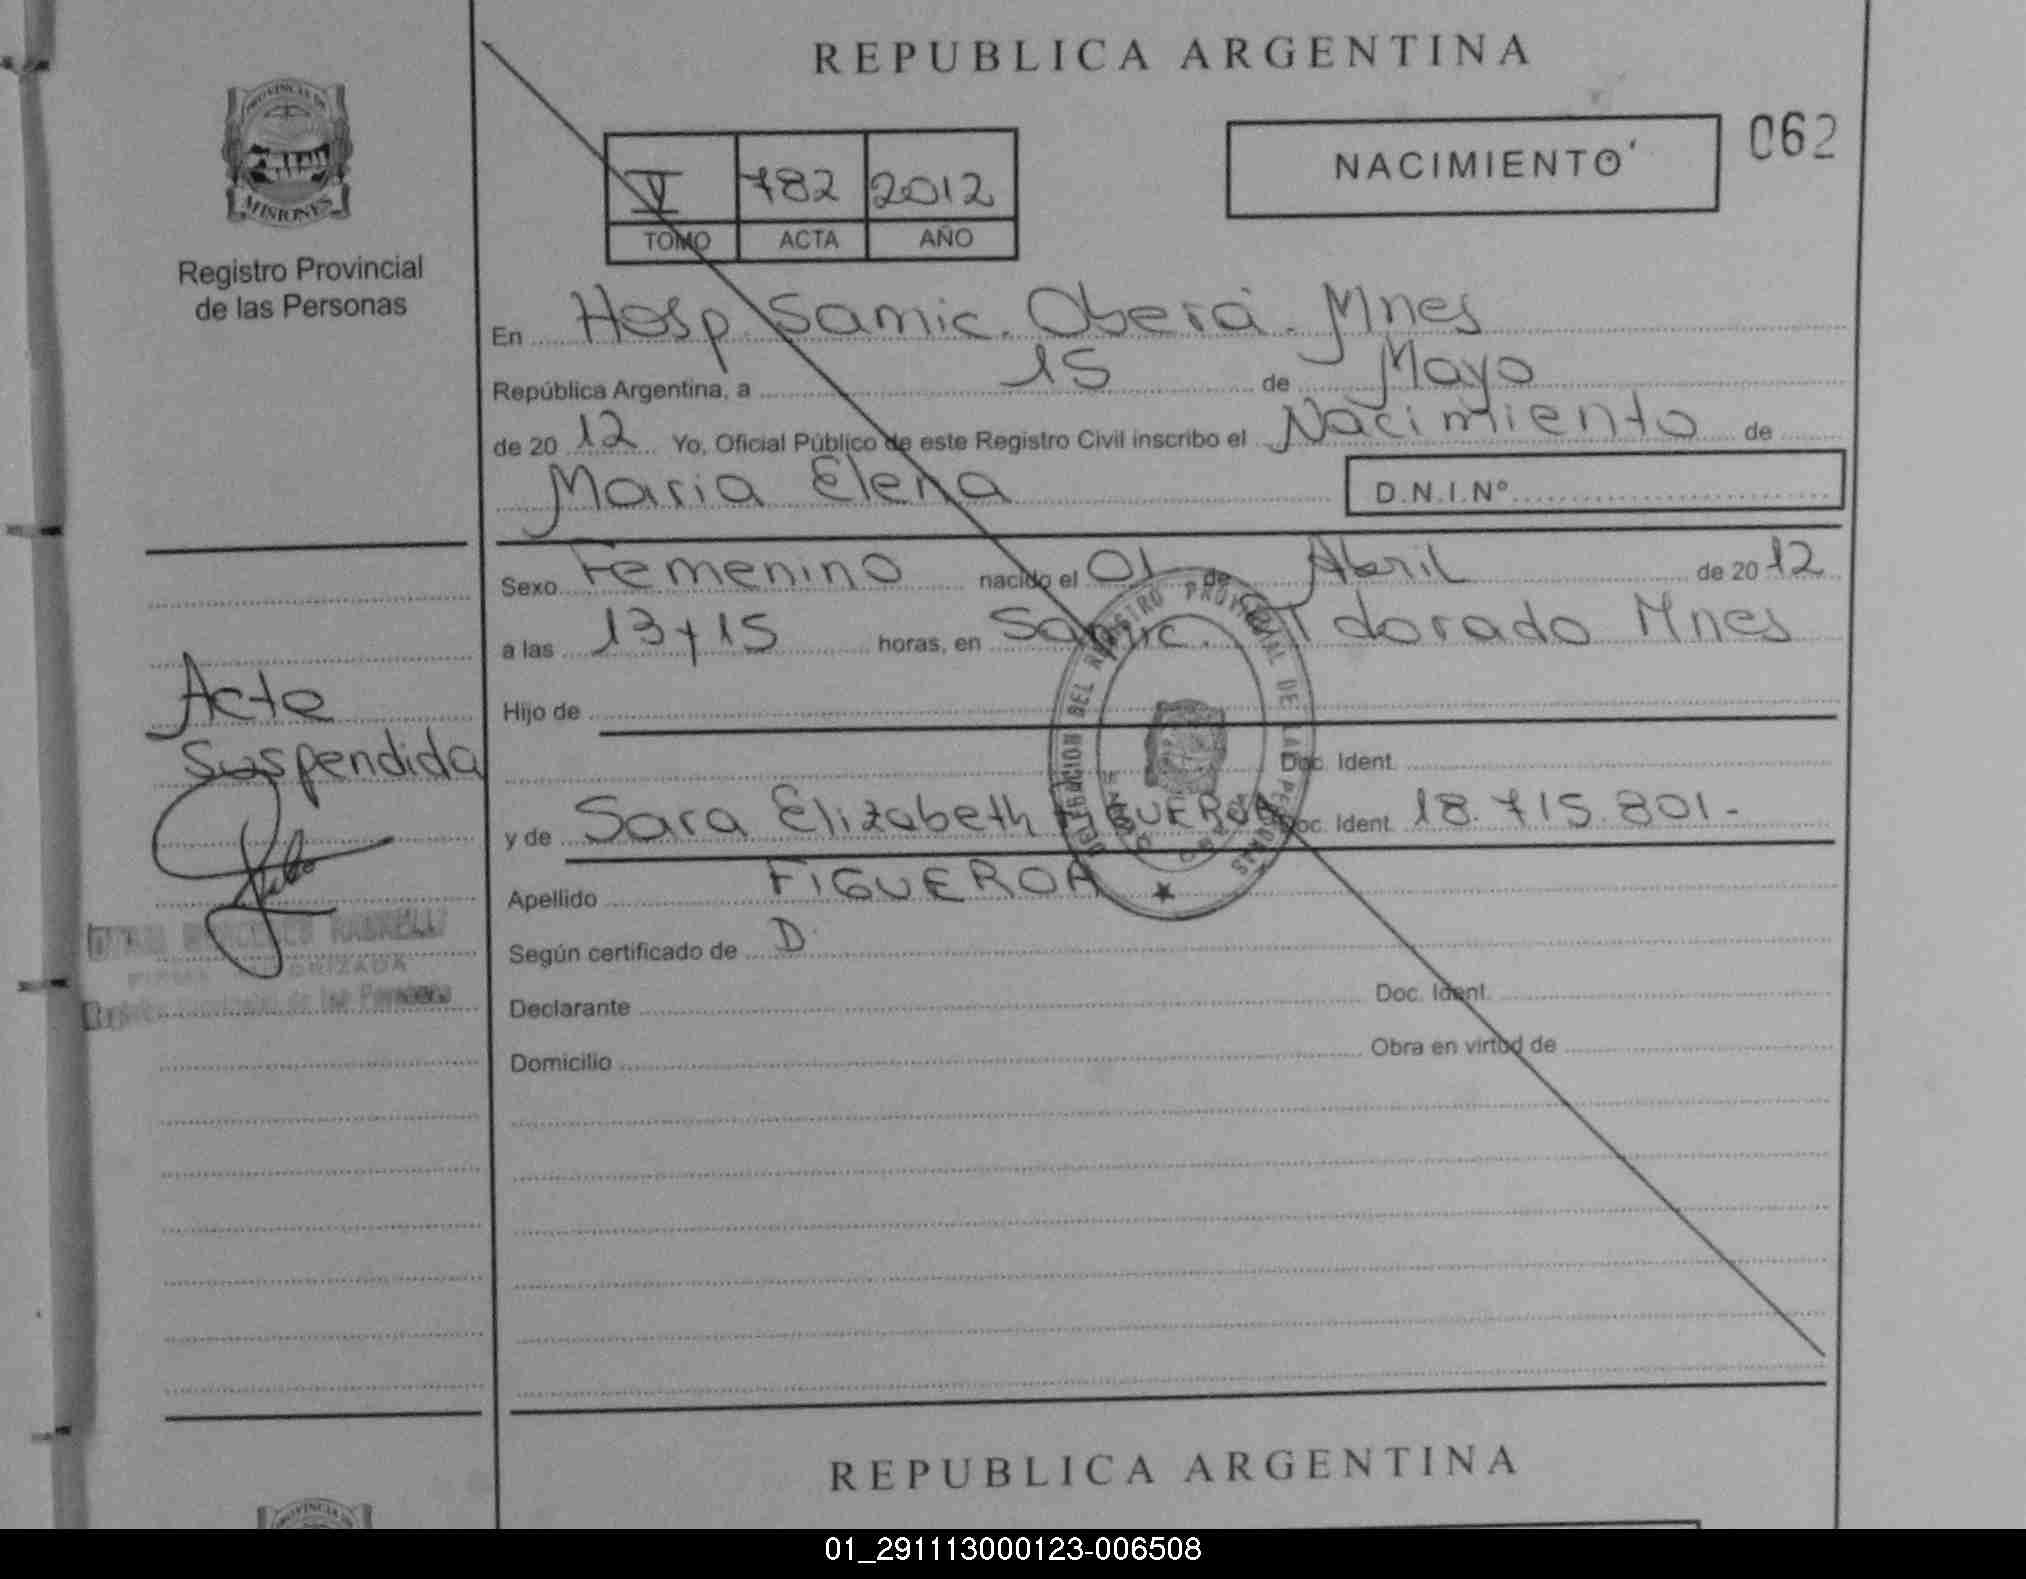 REPUBLICA ARGENTINA
PROVINCIA DE
MISIONES
Registro Provincial
de las Personas
V 782 2012
TOMO ACTA AÑO
NACIMIENTO
062
En Hosp. Samic. Oberá. Mnes
República Argentina, a 15 de Mayo
de 20 12 Yo, Oficial Público de este Registro Civil inscribo el Nacimiento de
Maria Elena D.N.I.Nº
Sexo Femenino nacido el 01 de Abril de 20 12
a las 13 y 15 horas, en Samic. dorado Mnes
Hijo de
Doc. Ident.
y de Sara Elizabeth FIGUEROA Doc. Ident. 18.715.801-
Apellido FIGUEROA
Según certificado de D
Declarante Doc. Ident.
Domicilio Obra en virtud de
Acta
Suspendida
DELEGACION DEL REGISTRO PROVINCIAL DE LAS PERSONAS
de las Personas
REPUBLICA ARGENTINA
PROVINCIA DE
01_291113000123-006508